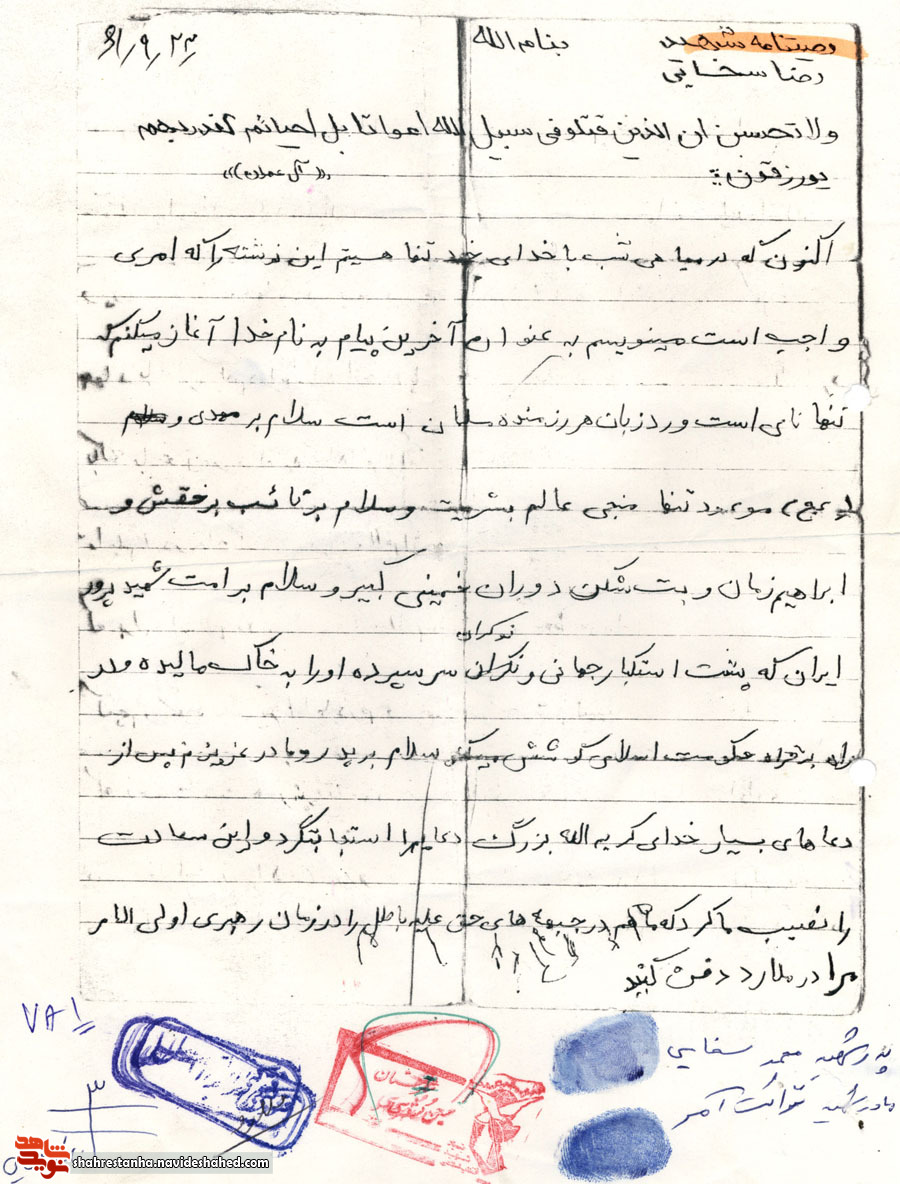 وصیتنامه شهید بنام الله ۶۱/۹/۲۳
رضا سخایی
ولا تحسبن ان الذین قتلو فی سبیل الله امواتا بل احیائهم عندربهم
یورزقون: «(آل عمران)»
اکنون که در سیاهی شب با خدای خود تنها هستیم این نوشته را که امری
واجب است مینویسم به عنوان آخرین پیام به نام خدا آغاز میکنم که
تنها نامی است ورد زبان هر رزمنده مسلمان است سلام بر مهدی و
(عج) موعود تنها منجی عالم بشریت و سلام بر نائب برحقش و
ابراهیم زمان و بت شکن دوران خمینی کبیر و سلام بر امت شهید پرور
نوکران
ایران که پشت استکبار جهانی و سر سپرده او را به خاک مالیده و در
راه حکومت اسلامی کوشش میکند سلام بر پدر و مادر عزیزم پس از
دعاهای بسیار خدای کریم الله بزرگ دعای را استجابت کرد و این سعادت
را نصیب ما کرد که ما هم در جبهه های حق علیه باطل را در زمان رهبری اولی الامر
مرا در ملارد دفن کنید
پدر شهید محمد سخایی
مادر شهید
VA1
۳
نوید شاهد
shahrestanha.navideshahed.com